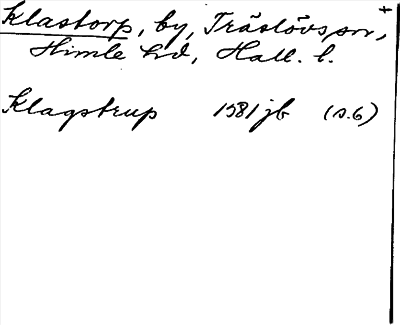 Klastorp, by, Träslövs sn, +
Himle hd, Hall. l.
Klagstrup 1581 jb (s.6)